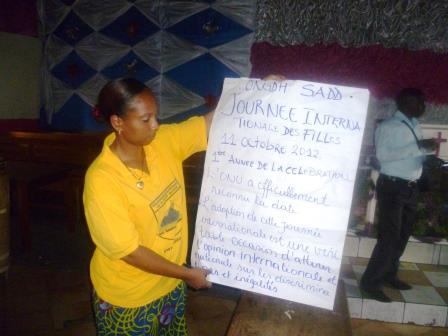 ONGDH SADD.
JOURNEE INTERNA
TIONALE DES FILLES
11 OCTOBRE 2012
1ère ANNEE DE LA CELEBRATION
L'ONU a officiellement
reconnu la date
L'adoption de cette journée
internationale est une véri
table occasion d'attirer
l'opinion internationale et
nationale sur les discrimina
tions et inégalités